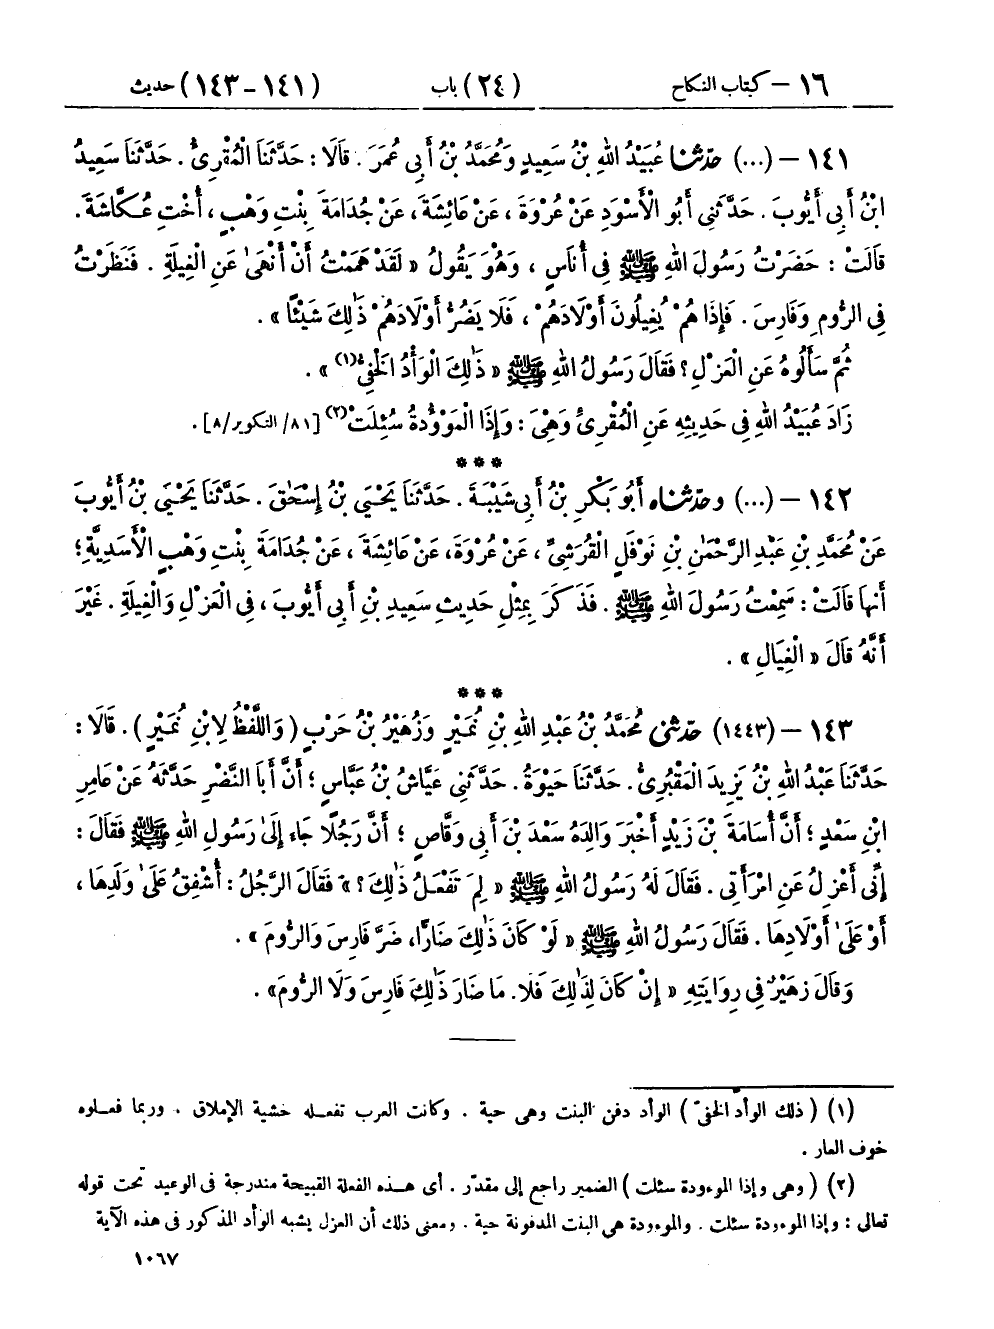 ١٦ – كتاب النكاح (٢٤) باب (١٤١-١٤٣) حديث
١٤١ – (...) حدثنا عُبَيْدُ اللهِ بْنُ سَعِيدٍ وَمُحَمَّدُ بْنُ أَبِي عُمَرَ. قَالَا: حَدَّثَنَا الْمُقْرِئُ. حَدَّثَنَا سَعِيدُ
ابْنُ أَبِي أَيُّوبَ. حَدَّثَنِي أَبُو الْأَسْوَدِ عَنْ عُرْوَةَ، عَنْ عَائِشَةَ، عَنْ جُدَامَةَ بِنْتِ وَهْبٍ، أُخْتِ عُكَّاشَةَ.
قَالَتْ: حَضَرْتُ رَسُولَ اللهِ ﷺ فِي أُنَاسٍ، وَهُوَ يَقُولُ « لَقَدْ هَمَمْتُ أَنْ أَنْهَىٰ عَنِ الْغِيلَةِ. فَنَظَرْتُ
فِي الرُّومِ وَفَارِسَ. فَإِذَا هُمْ يُغِيلُونَ أَوْلَادَهُمْ، فَلَا يَضُرُّ أَوْلَادَهُمْ ذَٰلِكَ شَيْئًا ».
ثُمَّ سَأَلُوهُ عَنِ الْعَزْلِ؟ فَقَالَ رَسُولُ اللهِ ﷺ « ذَٰلِكَ الْوَأْدُ الْخَفِيُّ(١) ».
زَادَ عُبَيْدُ اللهِ فِي حَدِيثِهِ عَنِ الْمُقْرِئِ وَهْيَ: وَإِذَا الْمَوْؤُدَةُ سُئِلَتْ(٢) [٨١/ التكوير/٨].
***
١٤٢ – (...) وحدثناه أَبُو بَكْرِ بْنُ أَبِي شَيْبَةَ. حَدَّثَنَا يَحْيَىٰ بْنُ إِسْحَٰقَ. حَدَّثَنَا يَحْيَىٰ بْنُ أَيُّوبَ
عَنْ مُحَمَّدِ بْنِ عَبْدِ الرَّحْمَٰنِ بْنِ نَوْفَلٍ الْقُرَشِيِّ، عَنْ عُرْوَةَ، عَنْ عَائِشَةَ، عَنْ جُدَامَةَ بِنْتِ وَهْبٍ الْأَسَدِيَّةِ؛
أَنَّهَا قَالَتْ: سَمِعْتُ رَسُولَ اللهِ ﷺ. فَذَكَرَ بِمِثْلِ حَدِيثِ سَعِيدِ بْنِ أَبِي أَيُّوبَ، فِي الْعَزْلِ وَالْغِيلَةِ. غَيْرَ
أَنَّهُ قَالَ « الْغِيَالِ ».
***
١٤٣ – (١٤٤٣) حدثني مُحَمَّدُ بْنُ عَبْدِ اللهِ بْنِ نُمَيْرٍ وَزُهَيْرُ بْنُ حَرْبٍ (وَاللَّفْظُ لِابْنِ نُمَيْرٍ). قَالَا:
حَدَّثَنَا عَبْدُ اللهِ بْنُ يَزِيدَ الْمَقْبُرِيُّ. حَدَّثَنَا حَيْوَةُ. حَدَّثَنِي عَيَّاشُ بْنُ عَبَّاسٍ؛ أَنَّ أَبَا النَّضْرِ حَدَّثَهُ عَنْ عَامِرِ
ابْنِ سَعْدٍ؛ أَنَّ أُسَامَةَ بْنَ زَيْدٍ أَخْبَرَ وَالِدَهُ سَعْدَ بْنَ أَبِي وَقَّاصٍ؛ أَنَّ رَجُلًا جَاءَ إِلَىٰ رَسُولِ اللهِ ﷺ فَقَالَ:
إِنِّي أَعْزِلُ عَنِ امْرَأَتِي. فَقَالَ لَهُ رَسُولُ اللهِ ﷺ « لِمَ تَفْعَلُ ذَٰلِكَ؟ » فَقَالَ الرَّجُلُ: أُشْفِقُ عَلَىٰ وَلَدِهَا،
أَوْ عَلَىٰ أَوْلَادِهَا. فَقَالَ رَسُولُ اللهِ ﷺ « لَوْ كَانَ ذَٰلِكَ ضَارًّا، ضَرَّ فَارِسَ وَالرُّومَ ».
وَقَالَ زُهَيْرٌ فِي رِوَايَتِهِ « إِنْ كَانَ لِذَٰلِكَ فَلَا. مَا ضَارَ ذَٰلِكَ فَارِسَ وَلَا الرُّومَ».
(١) (ذلك الوأد الخفيّ) الوأد دفن البنت وهي حية. وكانت العرب تفعله خشية الإملاق. وربما فعلوه
خوف العار.
(٢) (وهي وإذا الموءودة سئلت) الضمير راجع إلى مقدّر. أي هذه الفعلة القبيحة مندرجة في الوعيد تحت قوله
تعالى: وإذا الموءودة سئلت. والموءودة هي البنت المدفونة حية. ومعنى ذلك أن العزل يشبه الوأد المذكور في هذه الآية
١٠٦٧